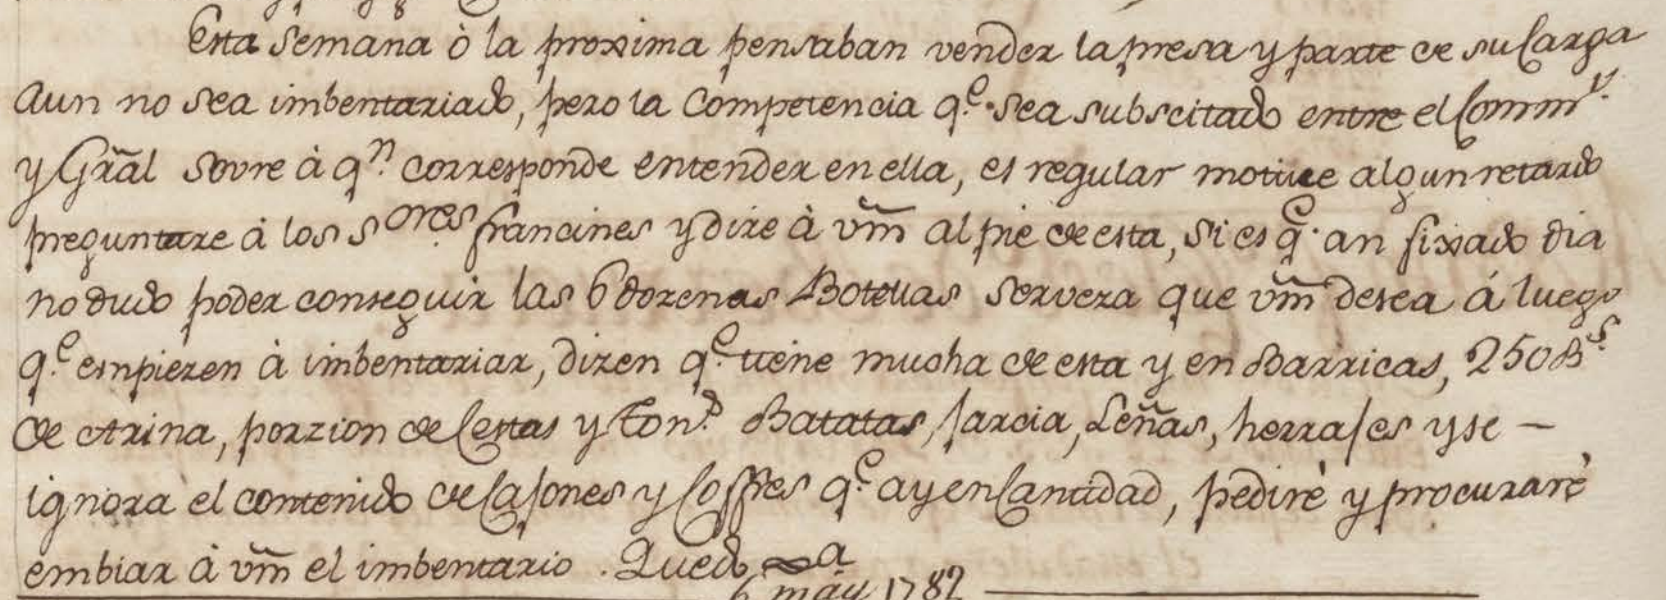 Esta Semana ò la proxima pensaban vender la presa y parte de su Carga
Aun no sea imbentariado, pero la Competencia q.e sea subscitado entre el Comm.r
y Gräl sovre à q.n corresponde entender en ella, es regular motive algun retardo
preguntare à los S.ores francines y dire à vm̃ al pie de esta, si es q.e an fixado dia
no dudo poder conseguir las 6 dozenas Botellas serveza que vm̃ desea á luego
q.e empiezen à imbentariar, dizen q.e tiene mucha de esta y en Barricas, 250 B.s
de Arina, porzion de Cestas y Ton.s Batatas, Jarcia, Leñas, herrajes y se —
ignora el contenido de Cajones y Coffres q.e ay en Cantidad, pediré y procuraré
embiar à vm̃ el imbentario. Quedo
6 may 1782